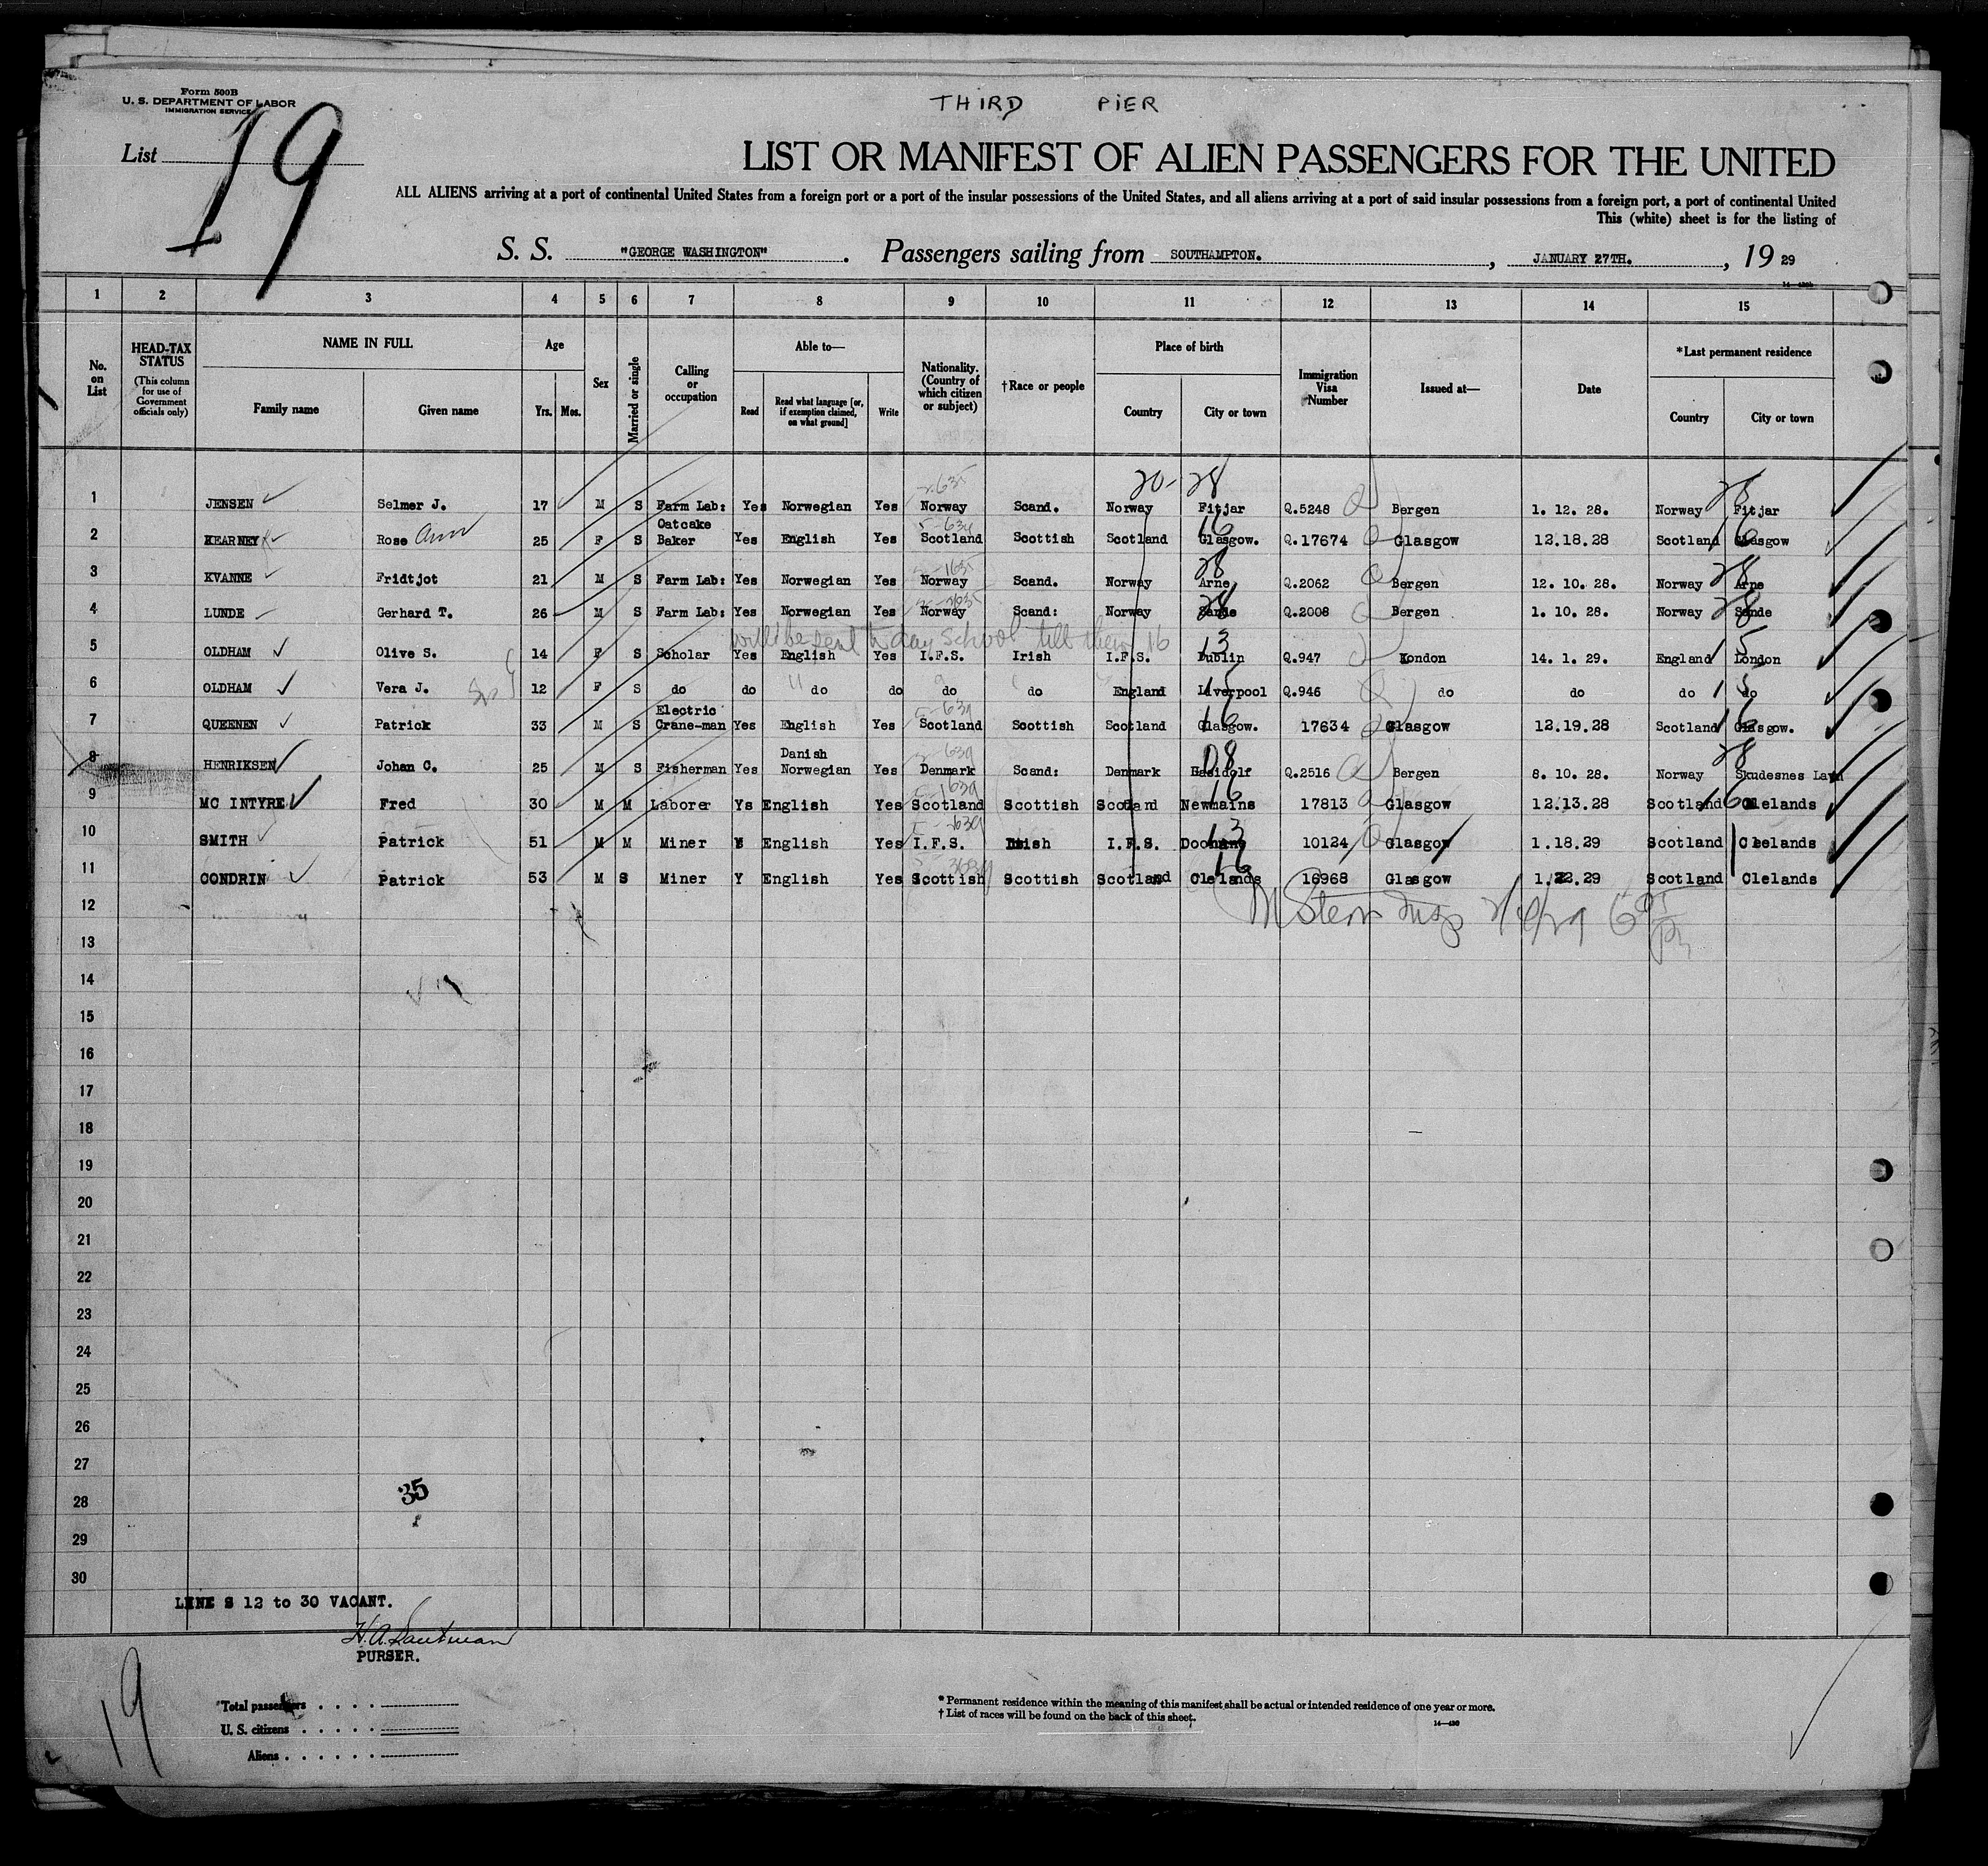 Form 500B
U. S. DEPARTMENT OF LABOR
IMMIGRATION SERVICE
THIRD PIER
List 19
LIST OR MANIFEST OF ALIEN PASSENGERS FOR THE UNITED
ALL ALIENS arriving at a port of continental United States from a foreign port or a port of the insular possessions of the United States, and all aliens arriving at a port of said insular possessions from a foreign port, a port of continental United
This (white) sheet is for the listing of
S. S. "GEORGE WASHINGTON". Passengers sailing from SOUTHAMPTON. , JANUARY 27TH. , 19 29
1 2 3 4 5 6 7 8 9 10 11 12 13 14 15
No. on List
HEAD-TAX STATUS
(This column for use of Government officials only)
NAME IN FULL
Family name Given name
Age
Yrs. Mos.
Sex
Married or single
Calling or occupation
Able to—
Read Read what language [or, if exemption claimed, on what ground] Write
Nationality. (Country of which citizen or subject)
†Race or people
Place of birth
Country City or town
Immigration Visa Number
Issued at—
Date
*Last permanent residence
Country City or town
20- 28 28
1 JENSEN Selmer J. 17 M S Farm Lab: Yes Norwegian Yes Norway Scand. Norway Fitjar Q.5248 Bergen 1. 12. 28. Norway Fitjar
2 KEARNEY Rose Ann 25 F S Oatcake Baker Yes English Yes Scotland Scottish Scotland Glasgow. 16 Q.17674 Glasgow 12.18.28 Scotland 16 Glasgow
3 KVANNE Fridtjot 21 M S Farm Lab: Yes Norwegian Yes Norway Scand. Norway Arne 28 Q.2062 Bergen 12. 10. 28. Norway 28 Arne
4 LUNDE Gerhard T. 26 M S Farm Lab: Yes Norwegian Yes Norway Scand: Norway Sande 28 Q.2008 Bergen 1. 10. 28. Norway 28 Sande
will be sent to day school till then 16
5 OLDHAM Olive S. 14 F S Scholar Yes English Yes I.F.S. Irish I.F.S. Dublin 13 Q.947 London 14. 1. 29. England 15 London
6 OLDHAM Vera J. 12 F S do do do do do do England Liverpool 15 Q.946 do do do 15 do
7 QUEENEN Patrick 33 M S Electric Crane-man Yes English Yes Scotland Scottish Scotland Glasgow. 16 17634 Glasgow 12.19.28 Scotland 16 Glasgow.
8 HENRIKSEN Johan C. 25 M S Fisherman Yes Danish Norwegian Yes Denmark Scand: Denmark 08 Q.2516 Bergen 8. 10. 28. Norway 28 Skudesnes
9 MC INTYRE Fred 30 M M Laborer Ys English Yes Scotland Scottish Scotland Newmains 16 17813 Glasgow 12.13.28 Scotland 16 Clelands
10 SMITH Patrick 51 M M Miner Y English Yes I.F.S. Irish I.F.S. 13 10124 Glasgow 1.18.29 Scotland Clelands
11 CONDRIN Patrick 53 M S Miner Y English Yes Scottish Scottish Scotland Clelands 16 16968 Glasgow 1.22.29 Scotland Clelands
12
M Stern Insp
13
14
15
16
17
18
19
20
21
22
23
24
25
26
27
28 35
29
30
LINE S 12 to 30 VACANT.
PURSER.
19
Total passengers
U. S. citizens
Aliens
* Permanent residence within the meaning of this manifest shall be actual or intended residence of one year or more.
† List of races will be found on the back of this sheet.
14—430